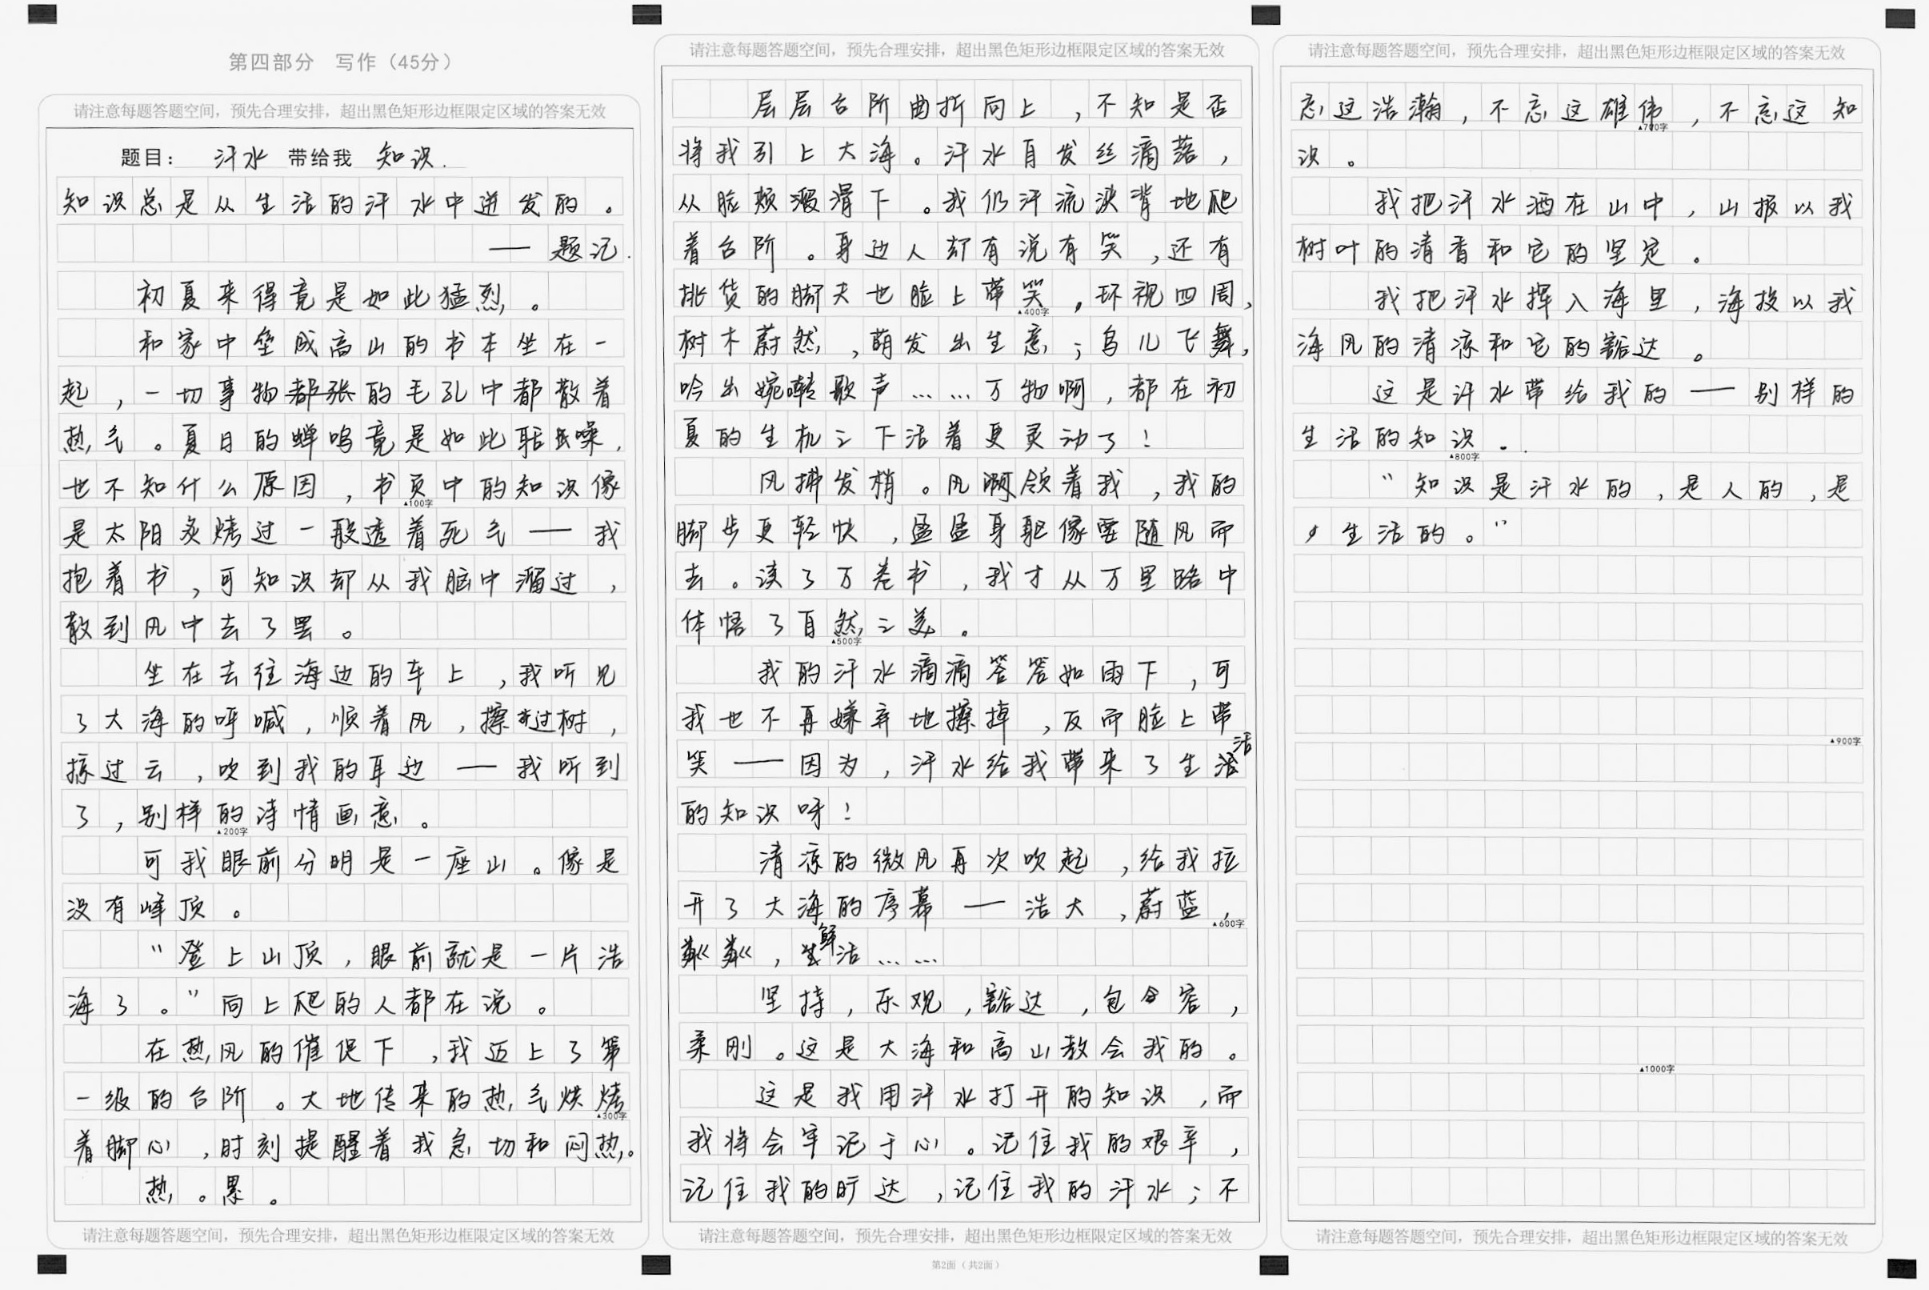 第四部分 写作（45分）
请注意每题答题空间，预先合理安排，超出黑色矩形边框限定区域的答案无效
题目： 汗水 带给我 知识.
知识总是从生活的汗水中迸发的。
——题记.
初夏来得竟是如此猛烈。
和家中垒成高山的书本坐在一
起，一切事物都张的毛孔中都散着
热气。夏日的蝉鸣竟是如此聒噪，
也不知什么原因，书页中的知识像
▲100字
是太阳炙烤过一般透着死气——我
抱着书，可知识却从我脑中溜过，
散到风中去了罢。
坐在去往海边的车上，我听见
了大海的呼喊，顺着风，擦过树，
掠过云，吹到我的耳边——我听到
了，别样的诗情画意。
▲200字
可我眼前分明是一座山。像是
没有峰顶。
“登上山顶，眼前就是一片浩
海了。”向上爬的人都在说。
在热风的催促下，我迈上了第
一级的台阶。大地传来的热气烘烤
▲300字
着脚心，时刻提醒着我急切和闷热。
热。累。
请注意每题答题空间，预先合理安排，超出黑色矩形边框限定区域的答案无效
请注意每题答题空间，预先合理安排，超出黑色矩形边框限定区域的答案无效
层层台阶曲折向上，不知是否
将我引上大海。汗水自发丝滴落，
从脸颊滚滑下。我仍汗流浃背地爬
着台阶。身边人却有说有笑，还有
挑货的脚夫也脸上带笑。环视四周，
▲400字
树木蔚然，萌发出生意；鸟儿飞舞，
吟出婉啭歌声……万物啊，都在初
夏的生机之下活着更灵动了！
风拂发梢。风啊领着我，我的
脚步更轻快，盈盈身躯像要随风而
去。读了万卷书，我才从万里路中
体悟了自然之美。
▲500字
我的汗水滴滴答答如雨下，可
我也不再嫌弃地擦掉，反而脸上带
笑——因为，汗水给我带来了生活
的知识呀！
清凉的微风再次吹起，给我拉
开了大海的序幕——浩大，蔚蓝，
▲600字
粼粼，鲜活……
坚持，乐观，豁达，包容，
柔刚。这是大海和高山教会我的。
这是我用汗水打开的知识，而
我将会牢记于心。记住我的艰辛，
记住我的旷达，记住我的汗水；不
请注意每题答题空间，预先合理安排，超出黑色矩形边框限定区域的答案无效
第2面（共2面）
请注意每题答题空间，预先合理安排，超出黑色矩形边框限定区域的答案无效
忘这浩瀚，不忘这雄伟，不忘这知
▲700字
识。
我把汗水洒在山中，山报以我
树叶的清香和它的坚定。
我把汗水挥入海里，海投以我
海风的清凉和它的豁达。
这是汗水带给我的——别样的
生活的知识。
▲800字
“知识是汗水的，是人的，是
生活的。”
▲900字
▲1000字
请注意每题答题空间，预先合理安排，超出黑色矩形边框限定区域的答案无效